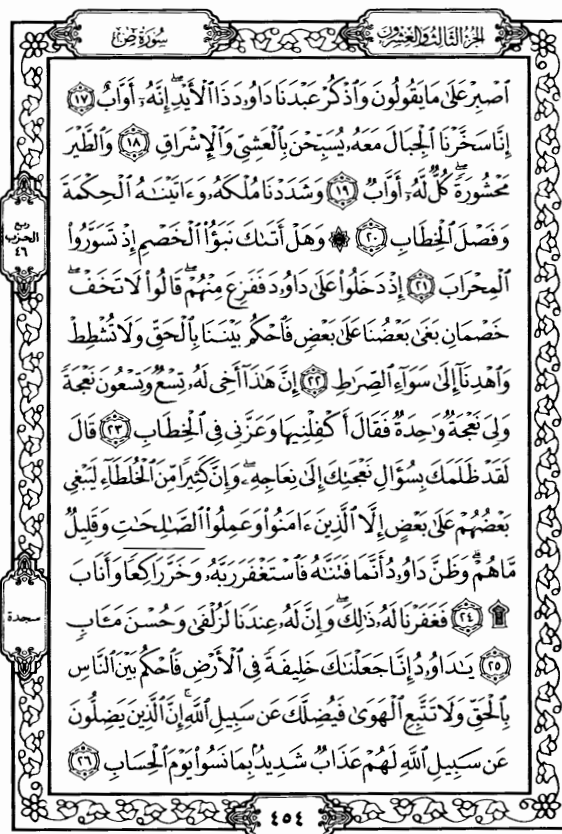 سُورَةُ صٓ
الجُزْءُ الثَّالِثُ وَالعِشْرُونَ
ٱصْبِرْ عَلَىٰ مَا يَقُولُونَ وَٱذْكُرْ عَبْدَنَا دَاوُۥدَ ذَا ٱلْأَيْدِ ۖ إِنَّهُۥٓ أَوَّابٌ ١٧
إِنَّا سَخَّرْنَا ٱلْجِبَالَ مَعَهُۥ يُسَبِّحْنَ بِٱلْعَشِىِّ وَٱلْإِشْرَاقِ ١٨ وَٱلطَّيْرَ
مَحْشُورَةً ۖ كُلٌّ لَّهُۥٓ أَوَّابٌ ١٩ وَشَدَدْنَا مُلْكَهُۥ وَءَاتَيْنَٰهُ ٱلْحِكْمَةَ
وَفَصْلَ ٱلْخِطَابِ ٢٠ ۞ وَهَلْ أَتَىٰكَ نَبَؤُا۟ ٱلْخَصْمِ إِذْ تَسَوَّرُوا۟
ٱلْمِحْرَابَ ٢١ إِذْ دَخَلُوا۟ عَلَىٰ دَاوُۥدَ فَفَزِعَ مِنْهُمْ ۖ قَالُوا۟ لَا تَخَفْ ۖ
خَصْمَانِ بَغَىٰ بَعْضُنَا عَلَىٰ بَعْضٍ فَٱحْكُم بَيْنَنَا بِٱلْحَقِّ وَلَا تُشْطِطْ
وَٱهْدِنَآ إِلَىٰ سَوَآءِ ٱلصِّرَٰطِ ٢٢ إِنَّ هَٰذَآ أَخِى لَهُۥ تِسْعٌ وَتِسْعُونَ نَعْجَةً
وَلِىَ نَعْجَةٌ وَٰحِدَةٌ فَقَالَ أَكْفِلْنِيهَا وَعَزَّنِى فِى ٱلْخِطَابِ ٢٣ قَالَ
لَقَدْ ظَلَمَكَ بِسُؤَالِ نَعْجَتِكَ إِلَىٰ نِعَاجِهِۦ ۖ وَإِنَّ كَثِيرًا مِّنَ ٱلْخُلَطَآءِ لَيَبْغِى
بَعْضُهُمْ عَلَىٰ بَعْضٍ إِلَّا ٱلَّذِينَ ءَامَنُوا۟ وَعَمِلُوا۟ ٱلصَّٰلِحَٰتِ وَقَلِيلٌ
مَّا هُمْ ۗ وَظَنَّ دَاوُۥدُ أَنَّمَا فَتَنَّٰهُ فَٱسْتَغْفَرَ رَبَّهُۥ وَخَرَّ رَاكِعًا وَأَنَابَ
۩ ٢٤ فَغَفَرْنَا لَهُۥ ذَٰلِكَ ۖ وَإِنَّ لَهُۥ عِندَنَا لَزُلْفَىٰ وَحُسْنَ مَـَٔابٍ
٢٥ يَٰدَاوُۥدُ إِنَّا جَعَلْنَٰكَ خَلِيفَةً فِى ٱلْأَرْضِ فَٱحْكُم بَيْنَ ٱلنَّاسِ
بِٱلْحَقِّ وَلَا تَتَّبِعِ ٱلْهَوَىٰ فَيُضِلَّكَ عَن سَبِيلِ ٱللَّهِ ۚ إِنَّ ٱلَّذِينَ يَضِلُّونَ
عَن سَبِيلِ ٱللَّهِ لَهُمْ عَذَابٌ شَدِيدٌۢ بِمَا نَسُوا۟ يَوْمَ ٱلْحِسَابِ ٢٦
ربع
الحزب
٤٦
سجدة
٤٥٤